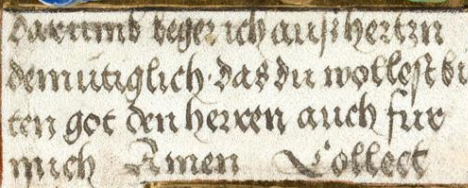 darumb beger ich auß hertzn
demutiglich · das du wollest bi
ten got den herren auch fur
mich Amen Collect